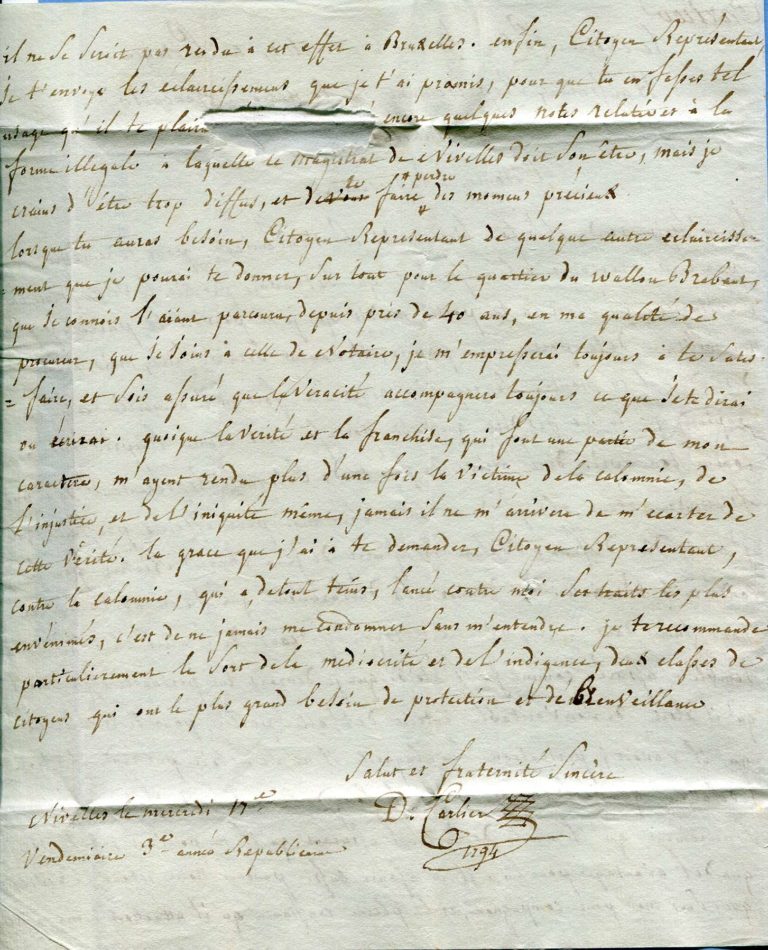 il ne se seroit pas rendu à cet effet à Bruxelles. enfin, Citoyen Representant,
Je t'envoye les eclaircissement que je t'ai promis, pour que tu en fasses tel
usage qu'il te plaira encore quelques notes relatives à la
forme illegale à laquelle le magistrat de Nivelles doit son être, mais je
crains d'être trop diffus, et de te faire perdre des momens précieux.
lorsque tu auras besoin, Citoyen Representant de quelque autre eclaircisse-
=ment que je pourai te donner, sur tout pour le quartier du wallon Brabant,
que je connois l'aiant parcouru, depuis près de 40 ans, en ma qualité de
procureur, que je joins à celle de Notaire, je m'empresserai toujours à te satis-
=faire, et sois assuré que la veracité accompagnera toujours ce que je te dirai
ou écrirai. quoique la verité et la franchise, qui font une partie de mon
caractère, m'ayent rendu plus d'une fois la victime de la calomnie, de
l'injustice, et de l'iniquité même, jamais il ne m'arrivera de m'ecarter de
cette vérité. la grace que j'ai à te demander, Citoyen Representant,
contre la calomnie, qui a, de tout tems, lancé contre moi ses traits les plus
envénimés, c'est de ne jamais me condamner sans m'entendre. je te recommande
particulierement le sort de la mediocrité et de l'indigence, deux classes de
citoyens qui ont le plus grand besoin de protection et de bienveillance
Salut et fraternité Sincère
Nivelles le mercredi 17e D. Carlier
Vendemiaire 3e année Republicaine 1794